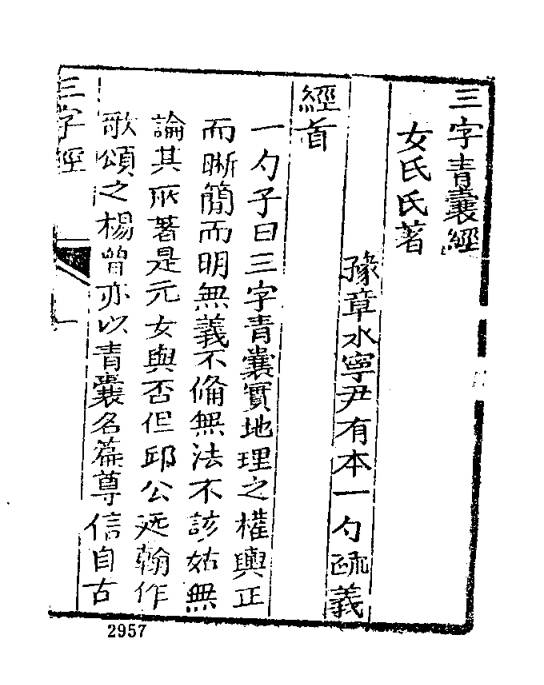 三字青囊經
女氏氏著
豫章水寧尹有本一勺疏義
經首
一勺子曰三字青囊實地理之權輿正
而晰簡而明無義不俻無法不該姑無
論其所著是元女與否但邱公延翰作
歌頌之楊曾亦以青囊名篇尊信自古
三字經
2957